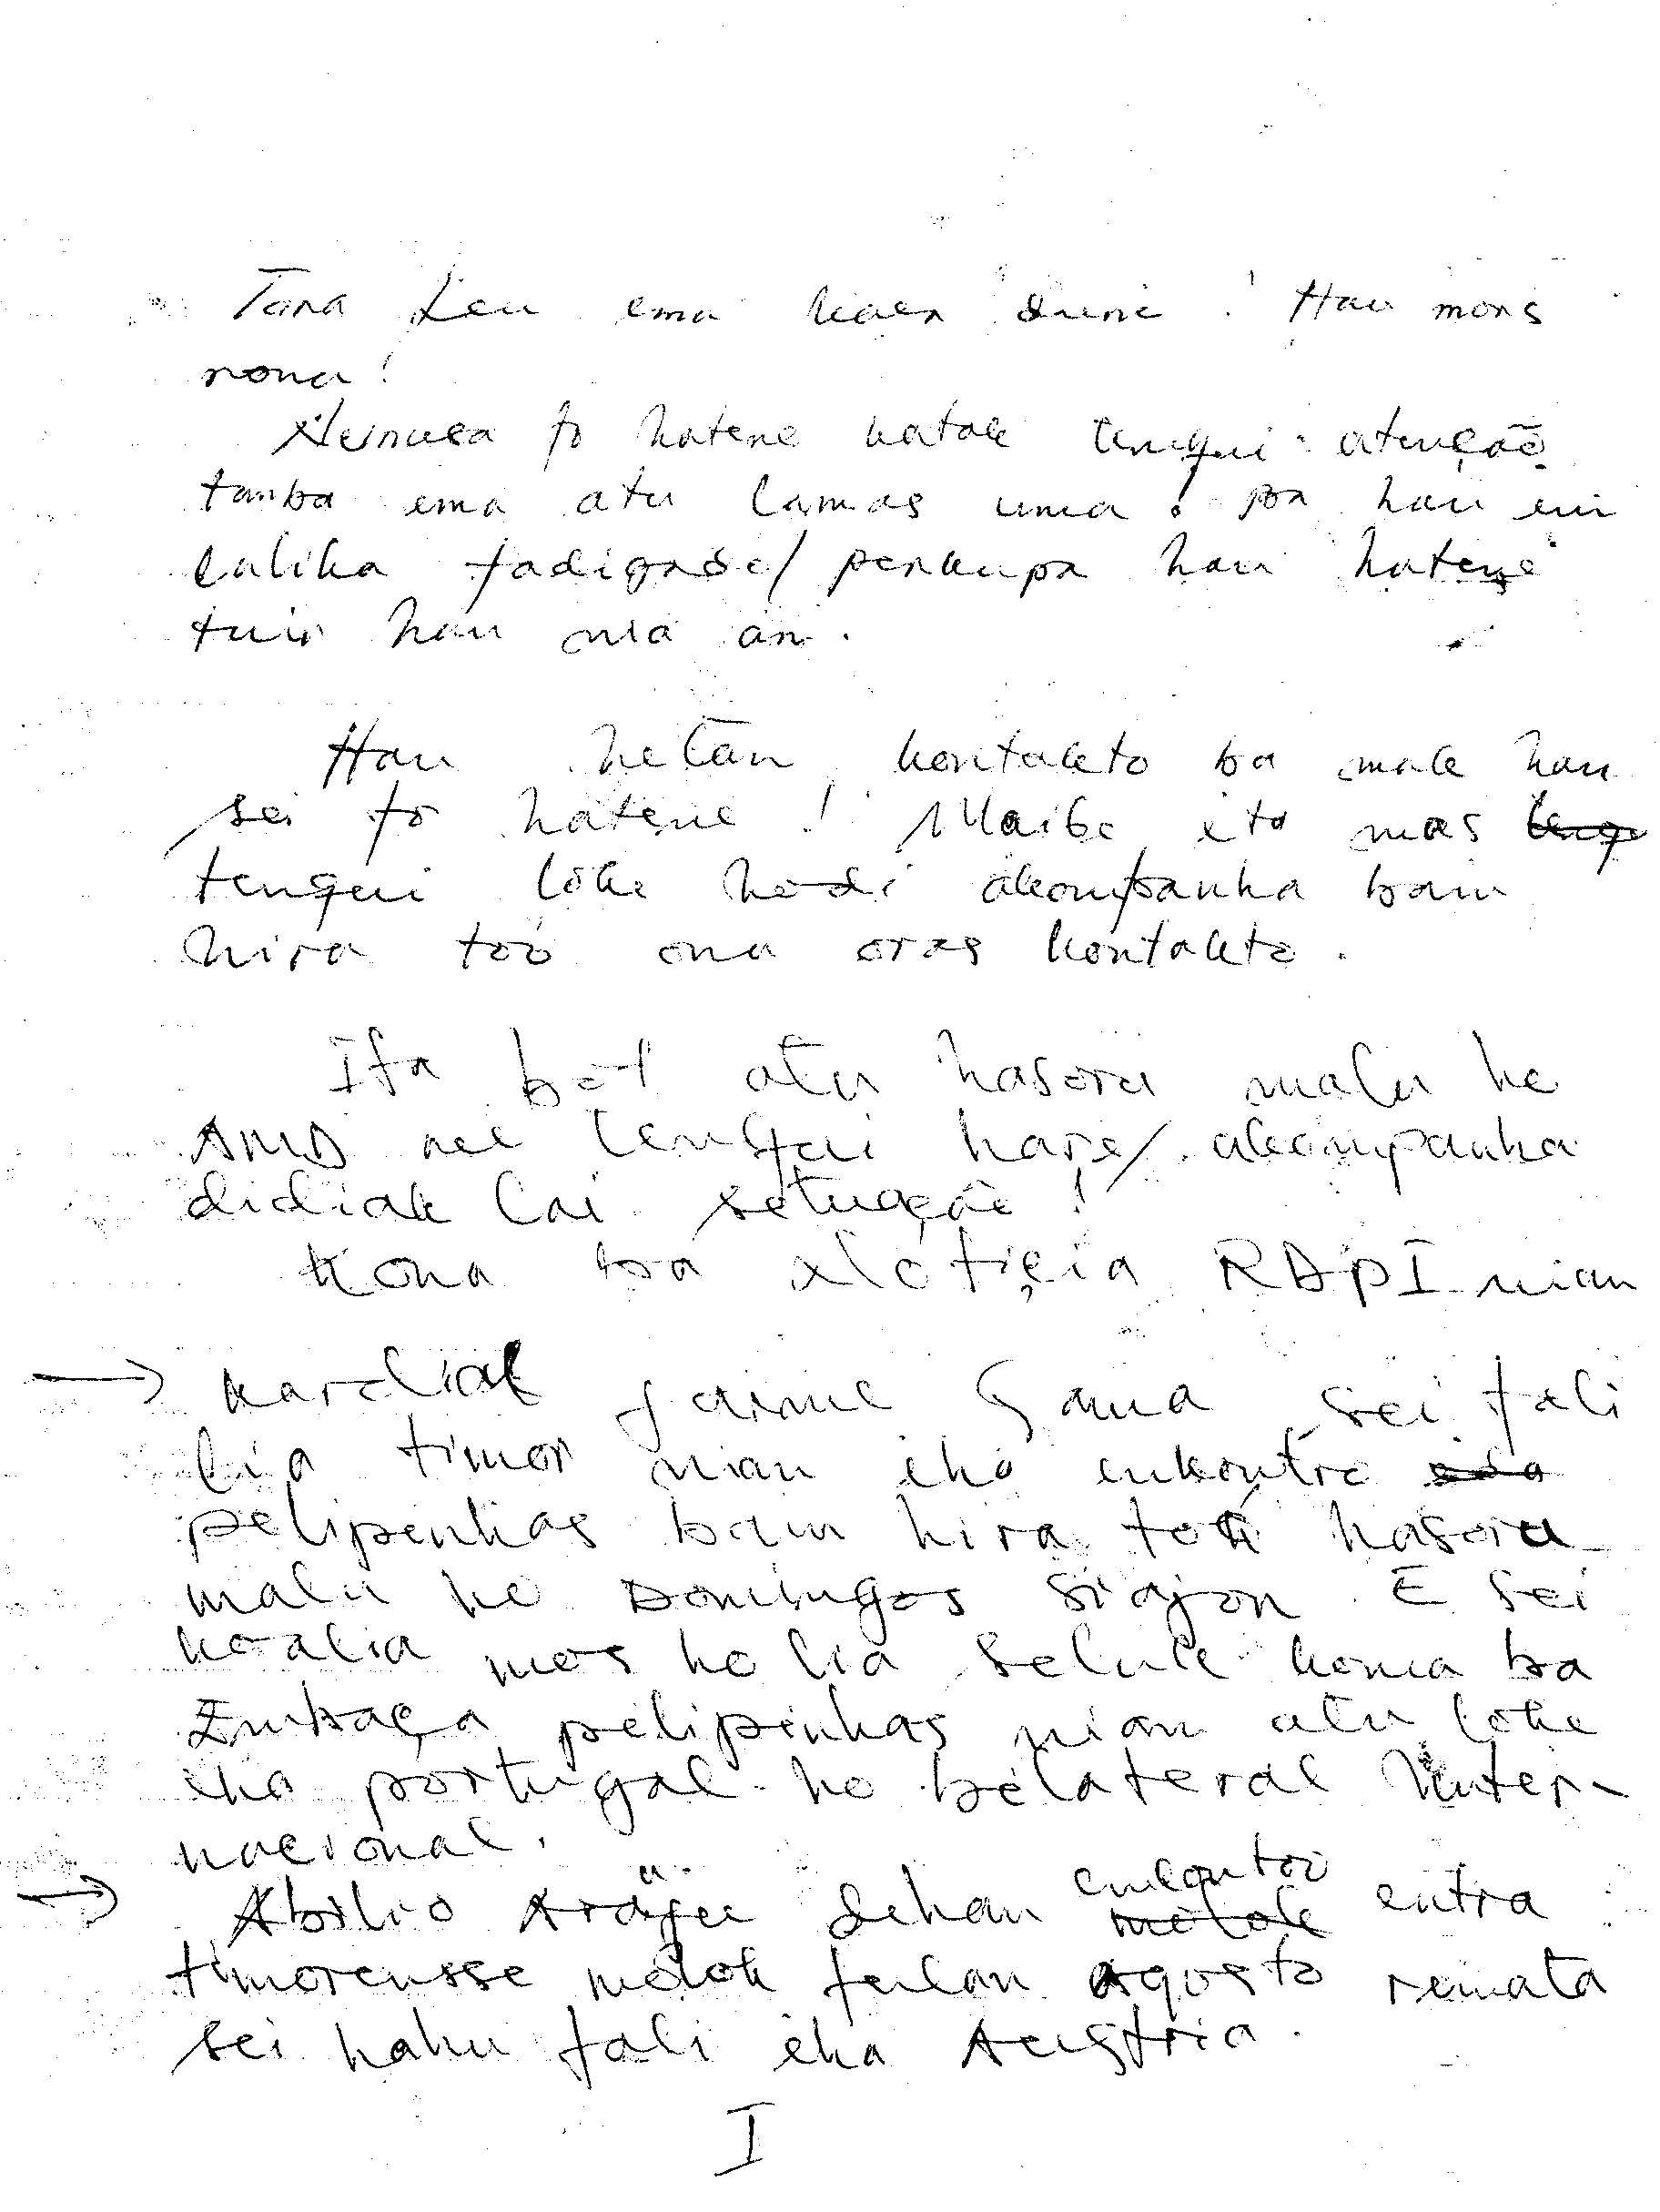 Tara Leu ema kaer duni! Hau mos
rona!
fo hatene katak tengui atenção
tamba ema atu lamas uma! ba hau
lalika fadigado/ hau hatene
tuir hau nia an.
Hau hetan kontakto ba mak hau
sei fo hatene! Maibe ita mos
tengui loke hodi akompanha bain
hira too ona oras kontakto.
Ita bot atu hasoru malu ho
AMD nee tengui hare/akompanha
didiak lai setuação!
Kona ba Noticia RDPI nian
→ Jaime Gama sei fali
lia timor nian iha enkontro
pelipenhas bain hira too hasoru
malu ho Domingos Siajon. E sei
koalia mos ho lia seluk kona ba
Embaça pelipinhas nian atu loke
iha portugal ho belateral Inter-
nacional.
→ Abilio Araúju dehan encontro entra
timorensse molok fulan agosto remata
sei hahu fali iha Austria.
I